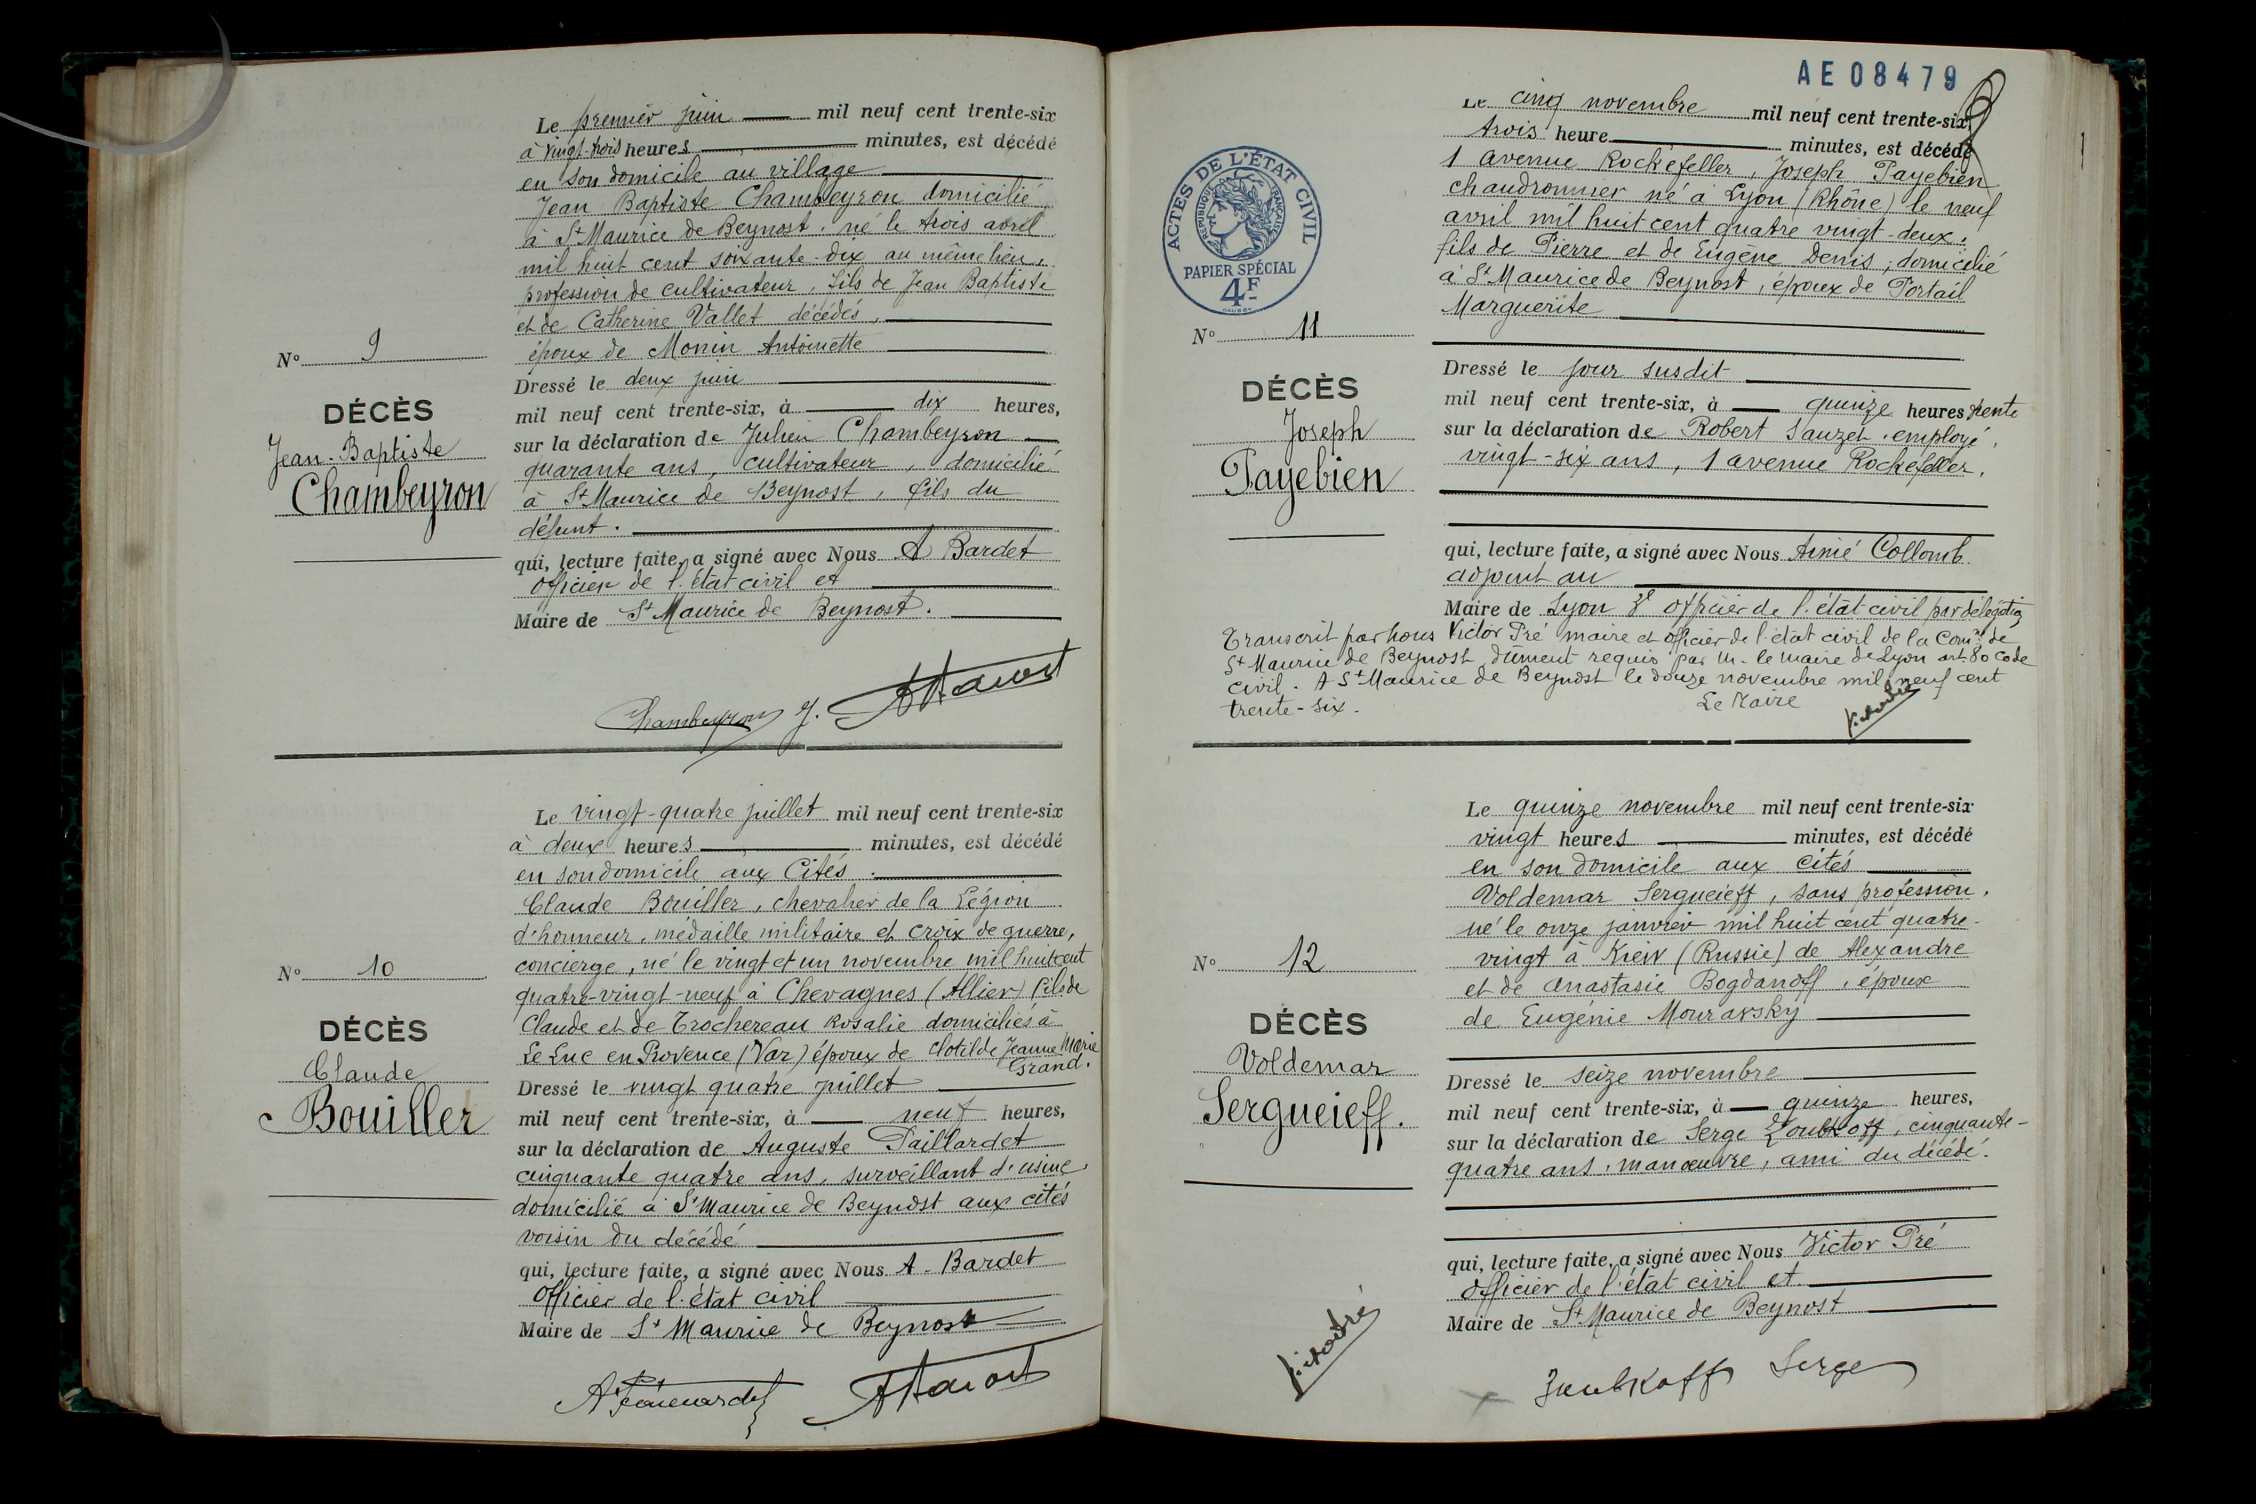 Le premier juin mil neuf cent trente-six
à vingt-trois heures minutes, est décédé
en son domicile au village
Jean Baptiste Chambeyron domicilié
à St Maurice de Beynost. né le trois avril
mil huit cent soixante-dix au même lieu,
profession de cultivateur, fils de Jean Baptiste
et de Catherine Vallet décédés,
époux de Monin Antoinette
N° 9
DÉCÈS
Jean-Baptiste
Chambeyron
Dressé le deux juin
mil neuf cent trente-six, à dix heures,
sur la déclaration de Julien Chambeyron
quarante ans, cultivateur, domicilié
à St Maurice de Beynost, fils du
défunt.
qui, lecture faite, a signé avec Nous A Bardet
officier de l'état civil et
Maire de St Maurice de Beynost.
Chambeyron J.
Le vingt-quatre juillet mil neuf cent trente-six
à deux heures minutes, est décédé
en son domicile aux Cités.
Claude Bouiller, chevalier de la Légion
d'honneur, médaille militaire et croix de guerre,
concierge, né le vingt et un novembre mil huit cent
quatre-vingt-neuf à Chevagnes (Allier) fils de
Claude et de Trochereau Rosalie domiciliés à
Le Luc en Provence (Var) époux de Clotilde Jeanne Marie
Grand.
N° 10
DÉCÈS
Claude
Bouiller
Dressé le vingt quatre juillet
mil neuf cent trente-six, à neuf heures,
sur la déclaration de Auguste Paillardet
cinquante quatre ans, surveillant d'usine,
domicilié à St Maurice de Beynost aux cités
voisin du décédé
qui, lecture faite, a signé avec Nous A. Bardet
Officier de l'état civil
Maire de St Maurice de Beynost
AE08479
Le cinq novembre mil neuf cent trente-six
trois heure minutes, est décédé
1 avenue Rockefeller, Joseph Payebien
chaudronnier né à Lyon (Rhône) le neuf
avril mil huit cent quatre vingt-deux,
fils de Pierre et de Eugène Denis, domicilié
à St Maurice de Beynost, époux de Portail
Marguerite
ACTES DE L'ÉTAT CIVIL
RÉPUBLIQUE FRANÇAISE
PAPIER SPÉCIAL
4F
N° 11
DÉCÈS
Joseph
Payebien
Dressé le jour susdit
mil neuf cent trente-six, à quinze heures trente
sur la déclaration de Robert Sauzet, employé,
vingt-six ans, 1 avenue Rockefeller,
qui, lecture faite, a signé avec Nous Aimé Collomb
adjoint au
Maire de Lyon 3e officier de l'état civil par délégation
Transcrit par nous Victor Pré maire et officier de l'état civil de la Comne de
St Maurice de Beynost dûment requis par M. le maire de Lyon art 80 code
civil. A St Maurice de Beynost le douze novembre mil neuf cent
trente-six.
Le Maire
Victor Pré
Le quinze novembre mil neuf cent trente-six
vingt heures minutes, est décédé
en son domicile aux cités
Voldemar Sergueieff, sans profession,
né le onze janvier mil huit cent quatre-
vingt à Kiew (Russie) de Alexandre
et de Anastasie Bogdanoff, époux
de Eugénie Mouravsky
N° 12
DÉCÈS
Voldemar
Sergueieff.
Dressé le seize novembre
mil neuf cent trente-six, à quinze heures,
sur la déclaration de Serge Zoubkoff, cinquante-
quatre ans, manoeuvre, ami du décédé.
qui, lecture faite, a signé avec Nous Victor Pré
Officier de l'état civil et
Maire de St Maurice de Beynost
Victor Pré
Zoubkoff Serge